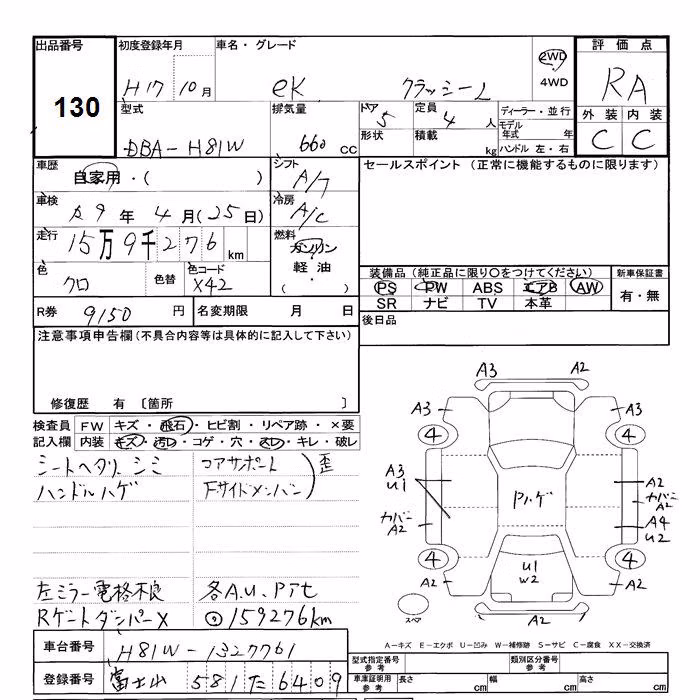 出品番号 初度登録年月 車名・グレード 評価点
130
H17 10月 eK クラッシーL 2WD 4WD RA
型式 排気量 ドア 定員 ディーラー・並行 外装 内装
DBA-H81W 660 CC 5 4人 モデル年式 年 C C
形状 積載 kg ハンドル 左・右
車歴 自家用・( ) シフト A/T セールスポイント (正常に機能するものに限ります)
車検 9年 4月(25日) 冷房 A/C
走行 15万9千276km 燃料 ガソリン 軽油
色 クロ 色替 色コード X42
装備品(純正品に限り○をつけてください) 新車保証書
PS PW ABS エアB AW 有・無
SR ナビ TV 本革
R券 9150円 名変期限 月 日 後日品
注意事項申告欄(不具合内容等は具体的に記入して下さい)
修復歴 有 〔箇所 〕
検査員 FW キズ・飛石・ヒビ割・リペア跡・×要
記入欄 内装 キズ・汚レ・コゲ・穴・スレ・キレ・破レ
シートヘタリ シミ コアサポート 歪
ハンドルハゲ Fサイドメンバー
左ミラー電格不良 各A.U.Pたて
Rゲートダンパー× ◎159276km
A3 A2
A3 A3
4 4
A3 U1 A2
Pハゲ カバーA2
カバーA2 A4 U2
4 U1 W2 4
A2 A2
スペア A2
A-キズ E-エクボ U-凹み W-補修跡 S-サビ C-腐食 XX-交換済
車台番号 H81W-1327761
登録番号 富士山 581 た 6409
型式指定番号 参考 類別区分番号 参考
車庫証明用 参考 長さ cm 幅 cm 高さ cm